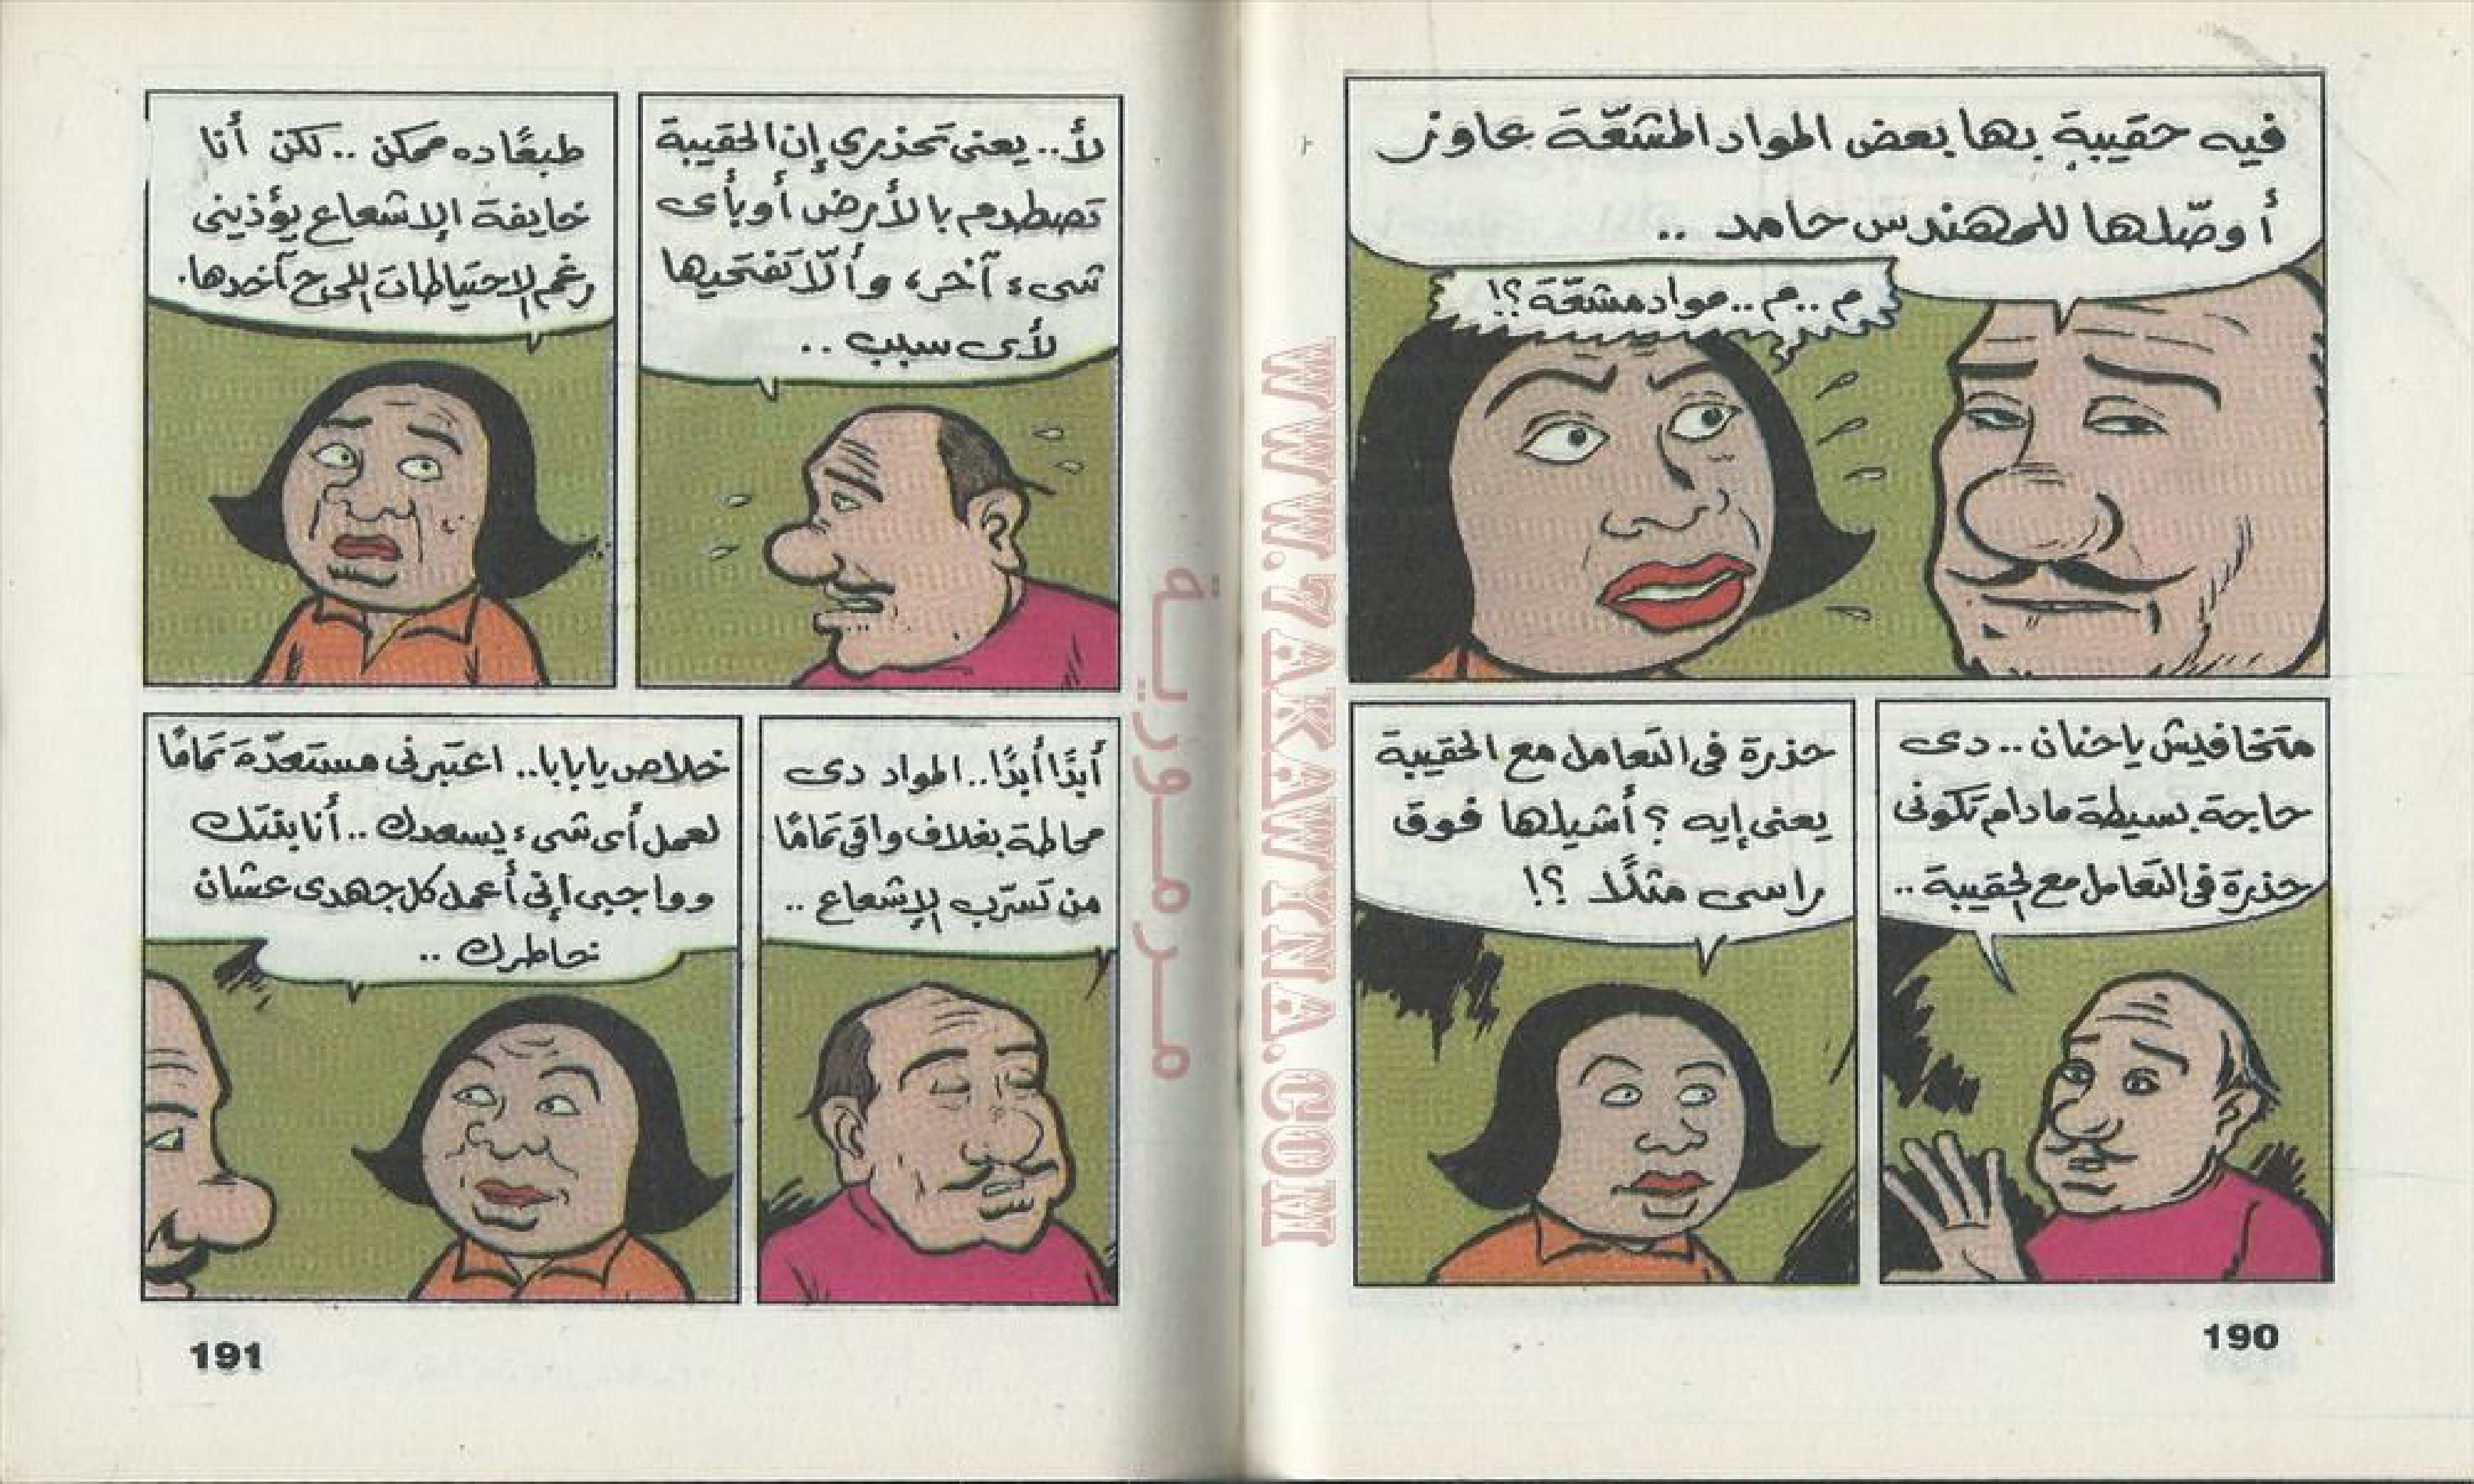 فيه حقيبة بها بعض المواد المشعّة عاوز
أوصّلها للمهندس حامد ..
م .. م .. مواد مشعّة ؟!
متخافيش ياحنان .. دى
حاجة بسيطة مادام تكونى
حذرة فى التعامل مع الحقيبة ..
حذرة فى التعامل مع الحقيبة
يعنى إيه ؟ أشيلها فوق
راسى مثلًا ؟!
190
لأ .. يعنى تحذرى إن الحقيبة
تصطدم بالأرض أو بأى
شىء آخر، وألّا تفتحيها
لأى سبب ..
طبعًا ده ممكن .. لكن أنا
خايفة الإشعاع يؤذينى
رغم الاحتياطات اللى ح آخدها.
أبدًا أبدًا .. المواد دى
محاطة بغلاف واقى تمامًا
من تسرّب الإشعاع ..
خلاص يابابا .. اعتبرنى مستعدّة تمامًا
لعمل أى شىء يسعدك .. أنا بنتك
وواجبى إنى أعمل كل جهدى عشان
خاطرك ..
191
WWW.7AKAWYNA.COM
مرمورية